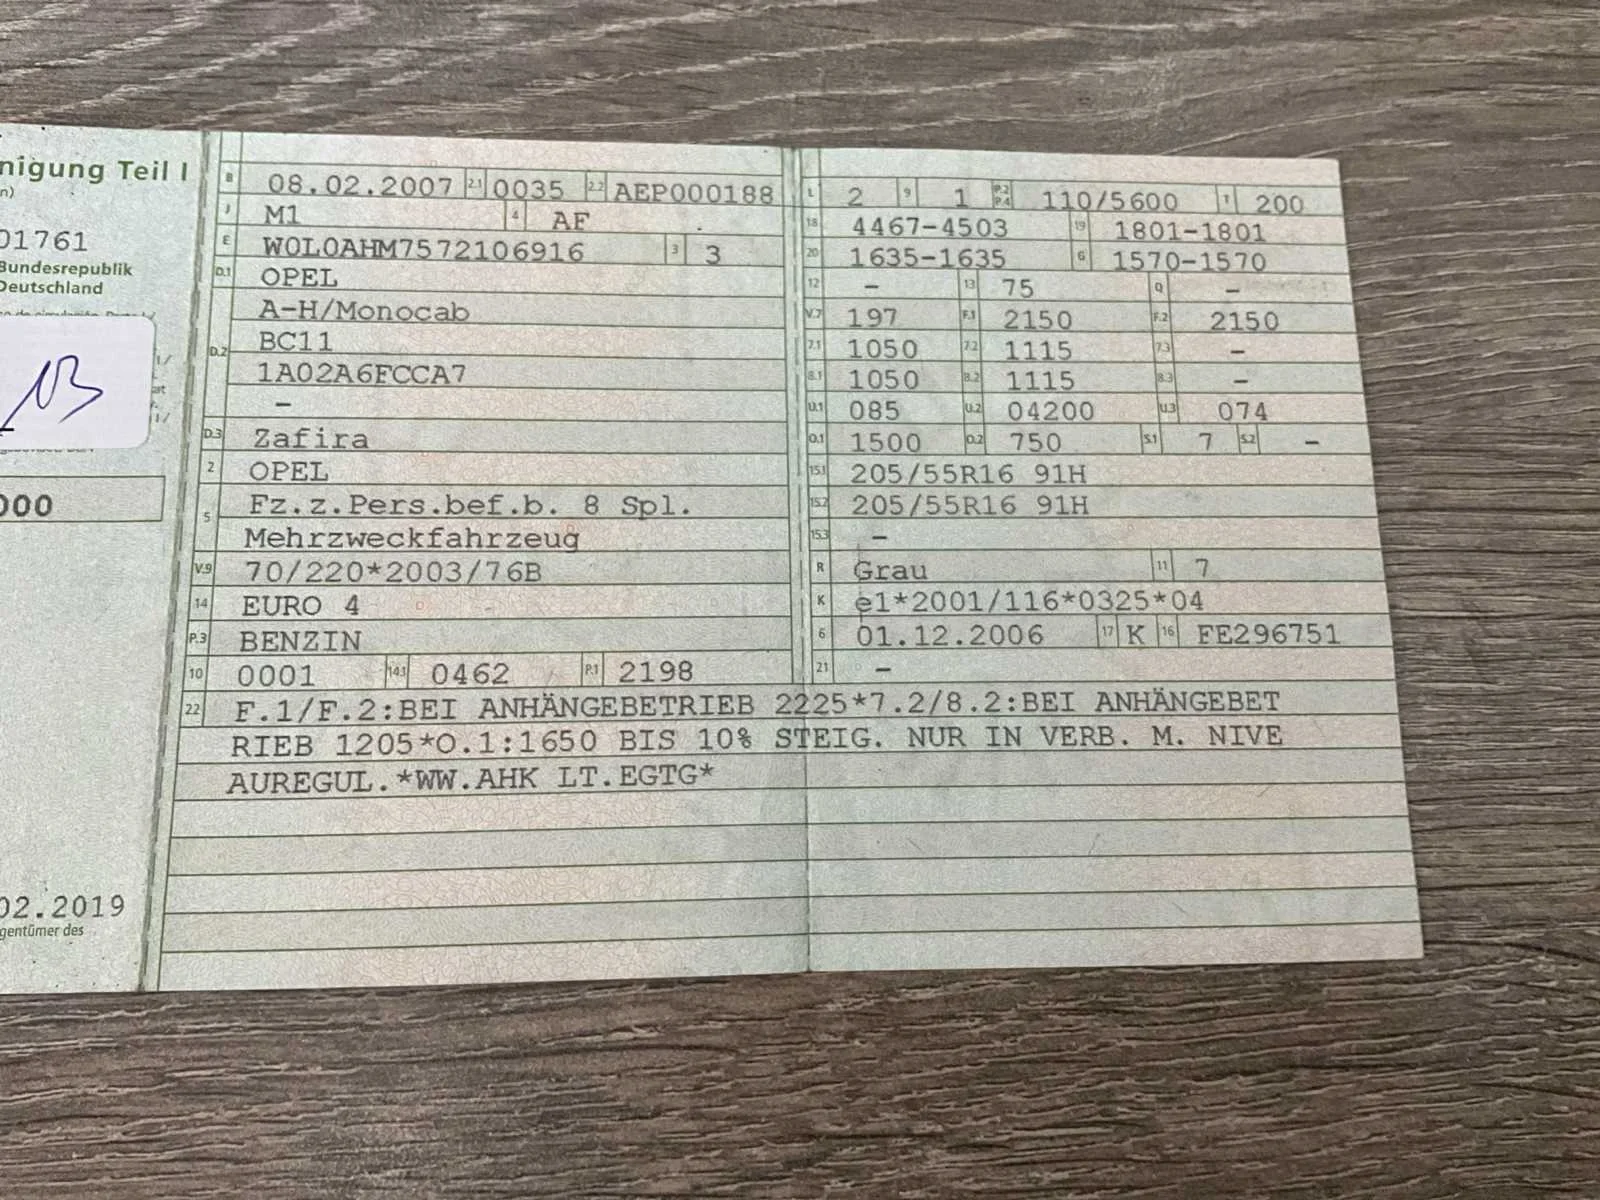 nigung Teil I
01761
Bundesrepublik
Deutschland
13
000
02.2019
gentümer des
B 08.02.2007 2.1 0035 2.2 AEP000188
J M1 4 AF
E W0L0AHM7572106916 3 3
D.1 OPEL
A-H/Monocab
D.2 BC11
1A02A6FCCA7
–
D.3 Zafira
2 OPEL
5 Fz.z.Pers.bef.b. 8 Spl.
Mehrzweckfahrzeug
V.9 70/220*2003/76B
14 EURO 4
P.3 BENZIN
10 0001 14.1 0462 P.1 2198
L 2 9 1 P.2 P.4 110/5600 T 200
18 4467-4503 19 1801-1801
20 1635-1635 G 1570-1570
12 – 13 75 Q –
V.7 197 F.1 2150 F.2 2150
7.1 1050 7.2 1115 7.3 –
8.1 1050 8.2 1115 8.3 –
U.1 085 U.2 04200 U.3 074
O.1 1500 O.2 750 S.1 7 S.2 –
15.1 205/55R16 91H
15.2 205/55R16 91H
15.3 –
R Grau 11 7
K e1*2001/116*0325*04
6 01.12.2006 17 K 16 FE296751
21 –
22 F.1/F.2:BEI ANHÄNGEBETRIEB 2225*7.2/8.2:BEI ANHÄNGEBET
RIEB 1205*O.1:1650 BIS 10% STEIG. NUR IN VERB. M. NIVE
AUREGUL.*WW.AHK LT.EGTG*